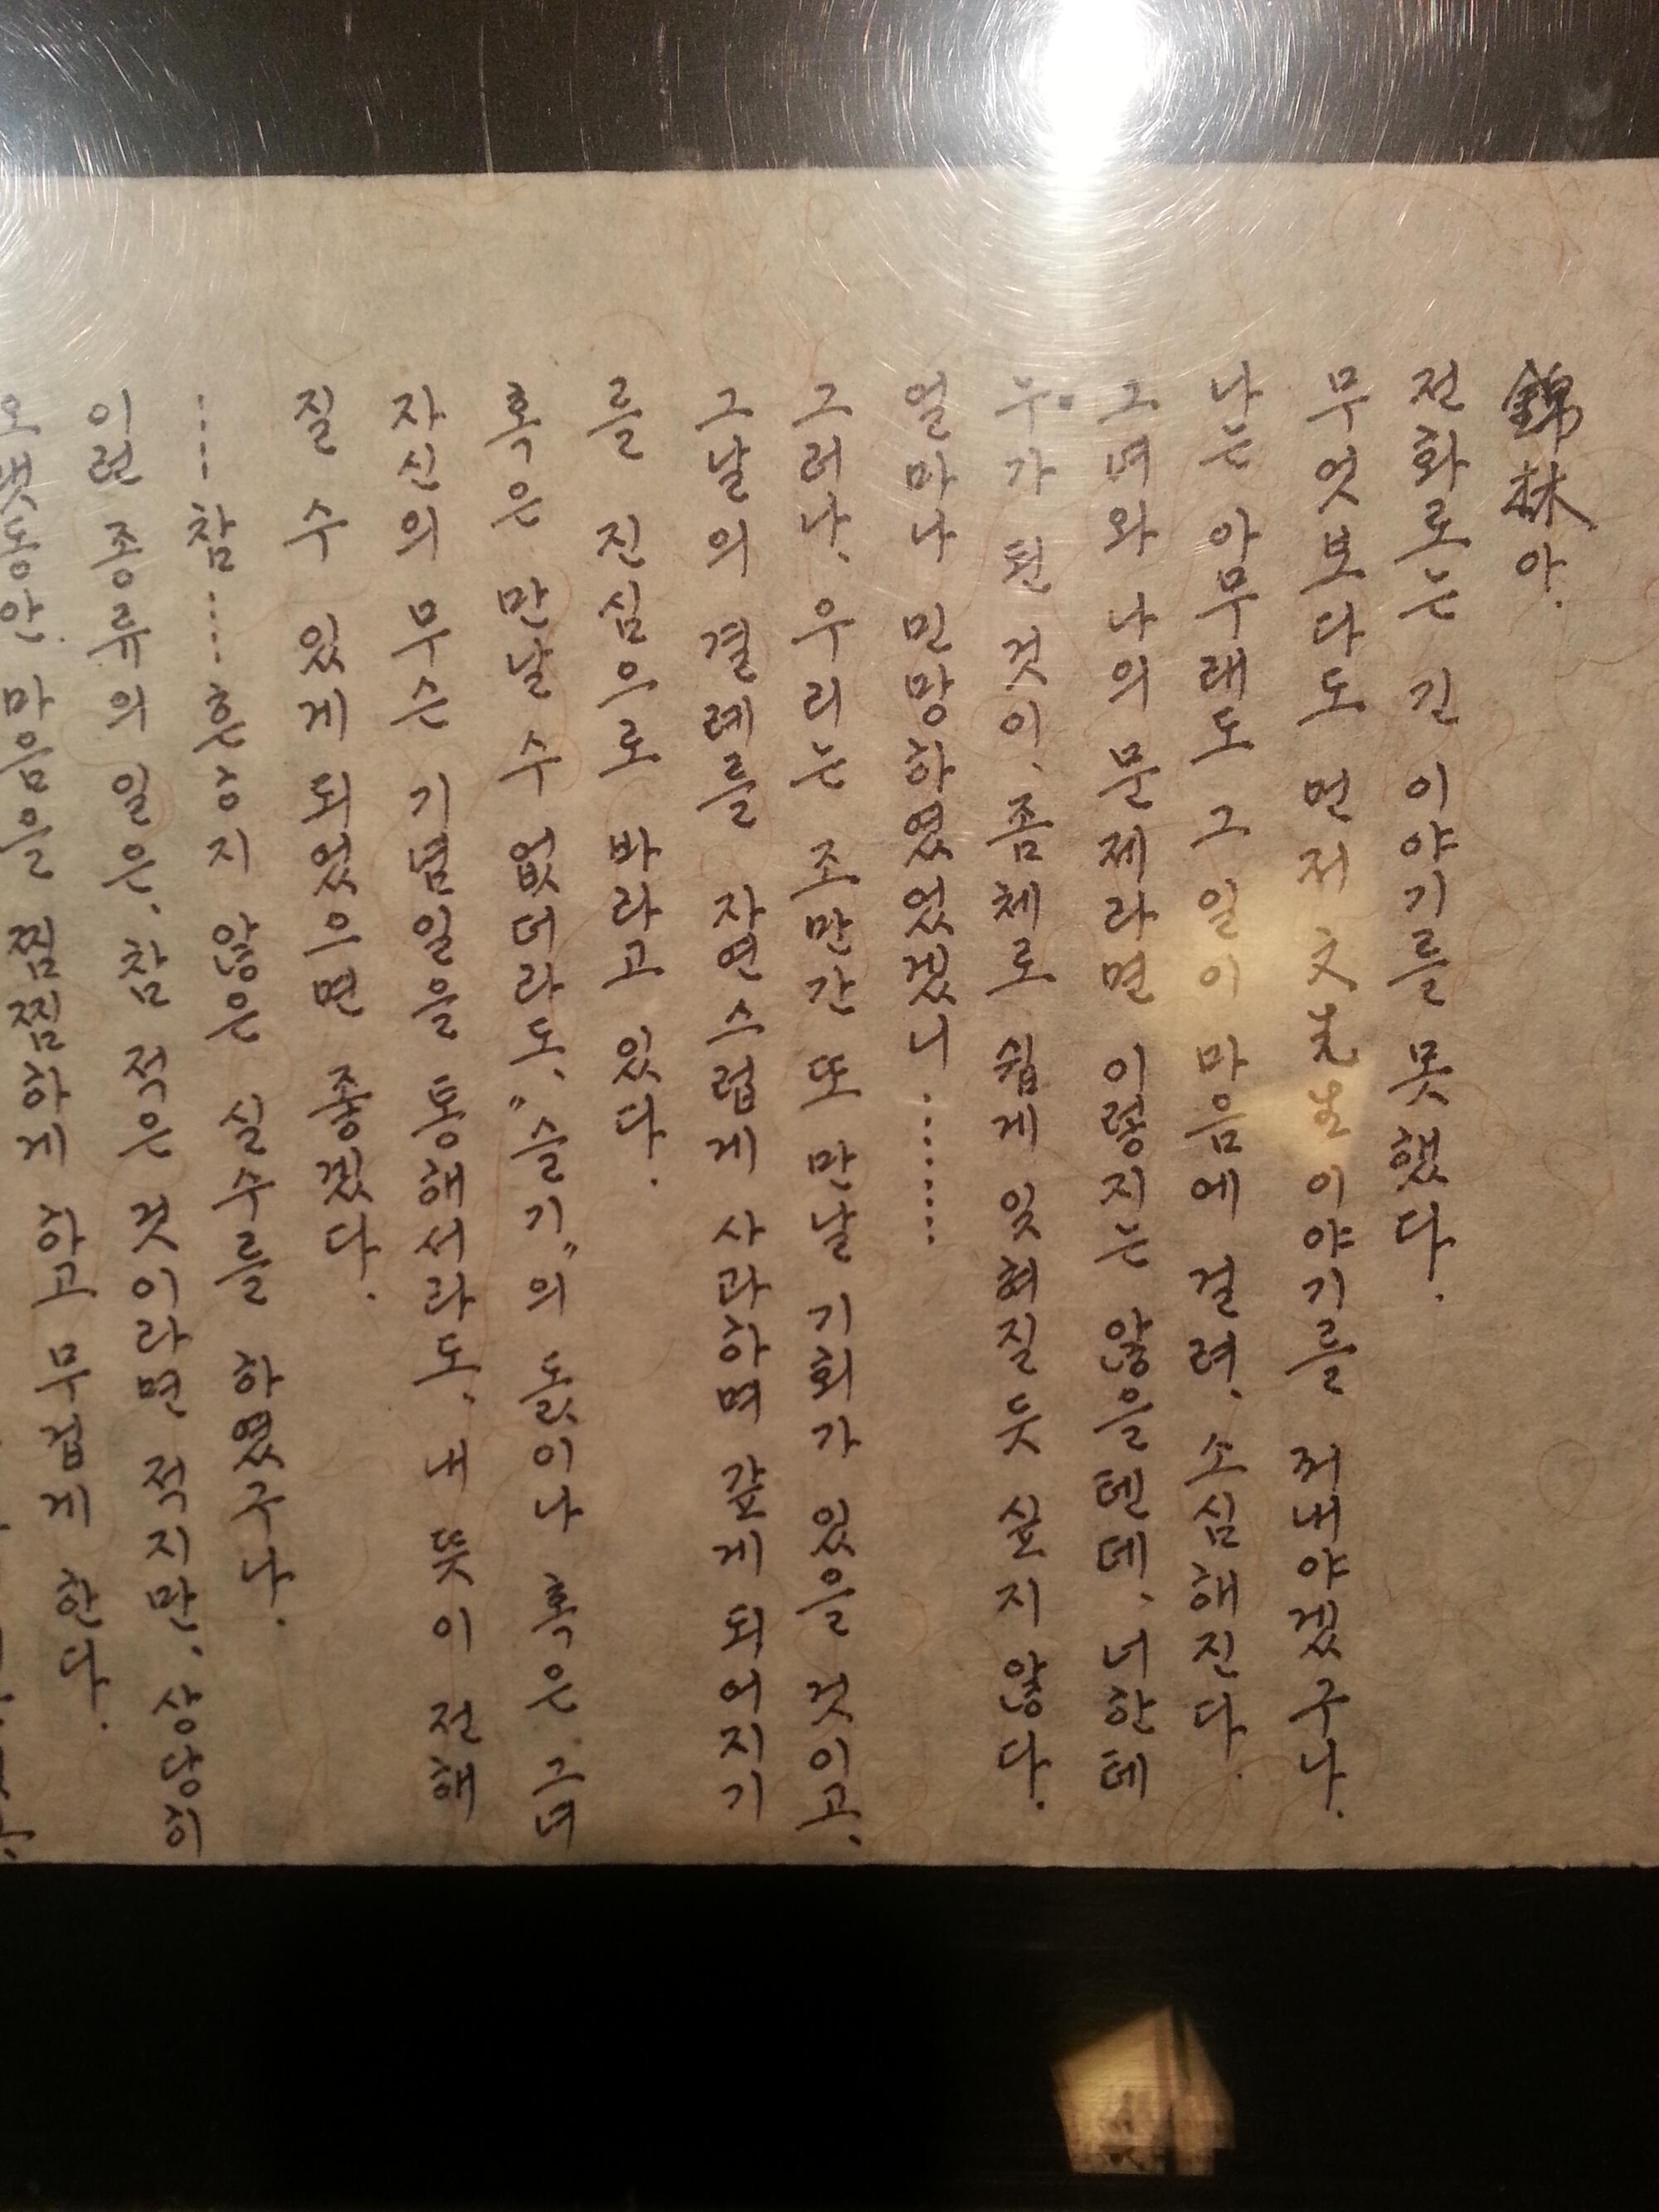 錦林아.
전화로는 긴 이야기를 못했다.
무엇보다도 먼저 文先生 이야기를 꺼내야겠구나.
나는 아무래도 그 일이 마음에 걸려, 소심해진다.
그녀와 나의 문제라면 이렇지는 않을텐데, 너한테
누가 된 것이, 좀체로 쉽게 잊혀질 듯 싶지 않다.
얼마나 민망하였었겠니……
그러나, 우리는 조만간 또 만날 기회가 있을 것이고,
그날의 결례를 자연스럽게 사과하며 갚게 되어지기
를 진심으로 바라고 있다.
혹은 만날 수 없더라도, "슬기"의 돐이나 혹은 그녀
자신의 무슨 기념일을 통해서라도, 내 뜻이 전해
질 수 있게 되었으면 좋겠다.
……참……흔하지 않은 실수를 하였구나.
이런 종류의 일은, 참 적은 것이라면 적지만, 상당히
오랫동안 마음을 찜찜하게 하고 무겁게 한다.